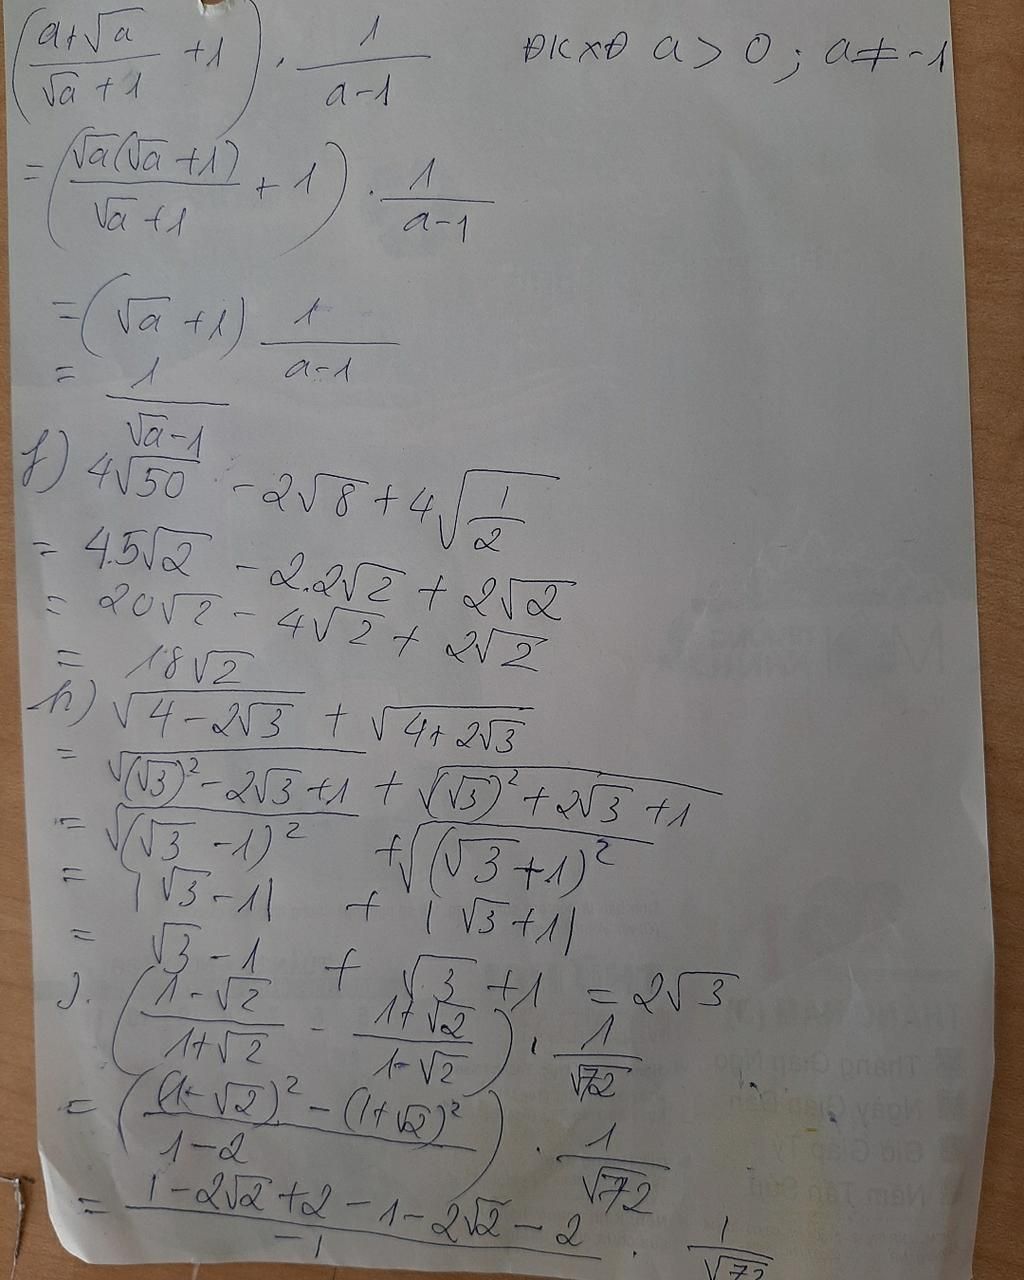 (a+√a / √a+1 + 1) . 1 / a-1 ĐKXĐ a > 0 ; a ≠ -1
= (√a(√a+1) / √a+1 + 1) . 1 / a-1
= (√a+1) 1 / a-1
= 1 / √a-1
f) 4√50 - 2√8 + 4√(1/2)
= 4.5√2 - 2.2√2 + 2√2
= 20√2 - 4√2 + 2√2
= 18√2
h) √(4-2√3) + √(4+2√3)
= √((√3)² - 2√3 + 1) + √((√3)² + 2√3 + 1)
= √((√3 - 1)²) + √((√3 + 1)²)
= |√3 - 1| + |√3 + 1|
= √3 - 1 + √3 + 1 = 2√3
(1-√2 / 1+√2 - 1+√2 / 1-√2) . 1 / √72
= ((1-√2)² - (1+√2)² / 1-2) . 1 / √72
= 1 - 2√2 + 2 - 1 - 2√2 - 2 / -1 . 1 / √72